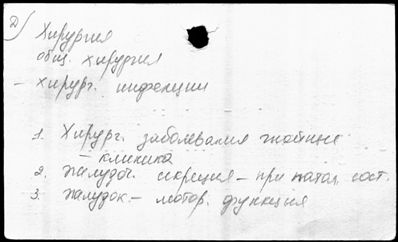 2) Хирургия
общ. хирургия
- хирург. инфекции
1. Хирург. заболевания гнойные
- клиника
2. Желудоч. секреция - при патол. сост.
3. Желудок - мотор. функция